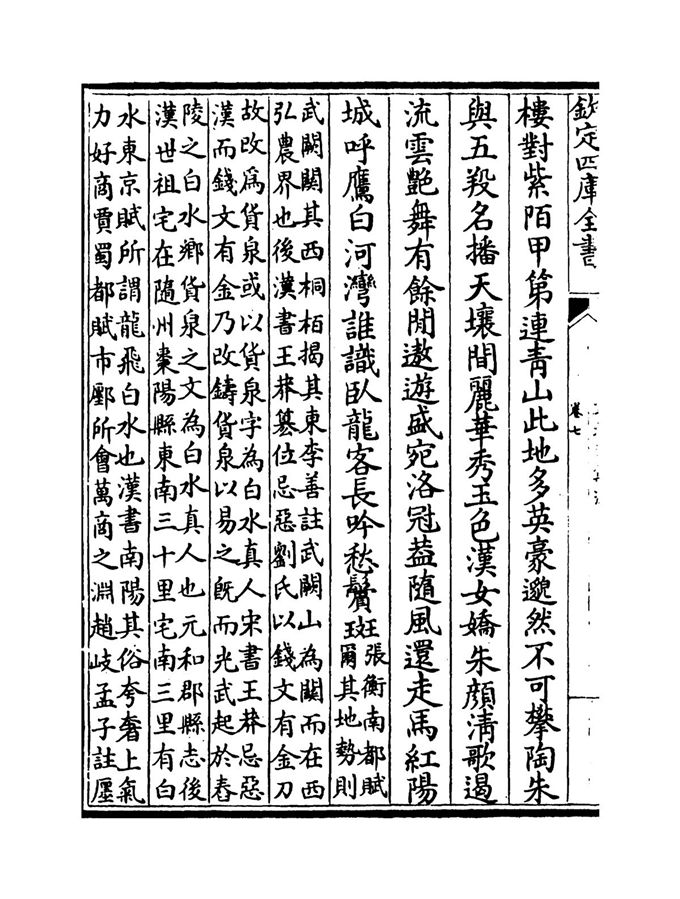 欽定四庫全書
卷七
樓對紫陌甲第連青山此地多英豪邈然不可攀陶朱
與五羖名播天壤間麗華秀玉色漢女嬌朱顔清歌遏
流雲艶舞有餘閒遨遊盛宛洛冠葢隨風還走馬紅陽
城呼鷹白河灣誰識臥龍客長吟愁鬢斑
張衡南都賦
爾其地勢則
武闕闗其西桐栢揭其東李善註武闕山為闗而在西
弘農界也後漢書王莽簒位忌惡劉氏以錢文有金刀
故改為貨泉或以貨泉字為白水真人宋書王莽忌惡
漢而錢文有金乃改鑄貨泉以易之既而光武起於舂
陵之白水鄉貨泉之文為白水真人也元和郡縣志後
漢世祖宅在隨州棗陽縣東南三十里宅南三里有白
水東京賦所謂龍飛白水也漢書南陽其俗夸奢上氣
力好商賈蜀都賦市鄽所會萬商之淵趙岐孟子註廛